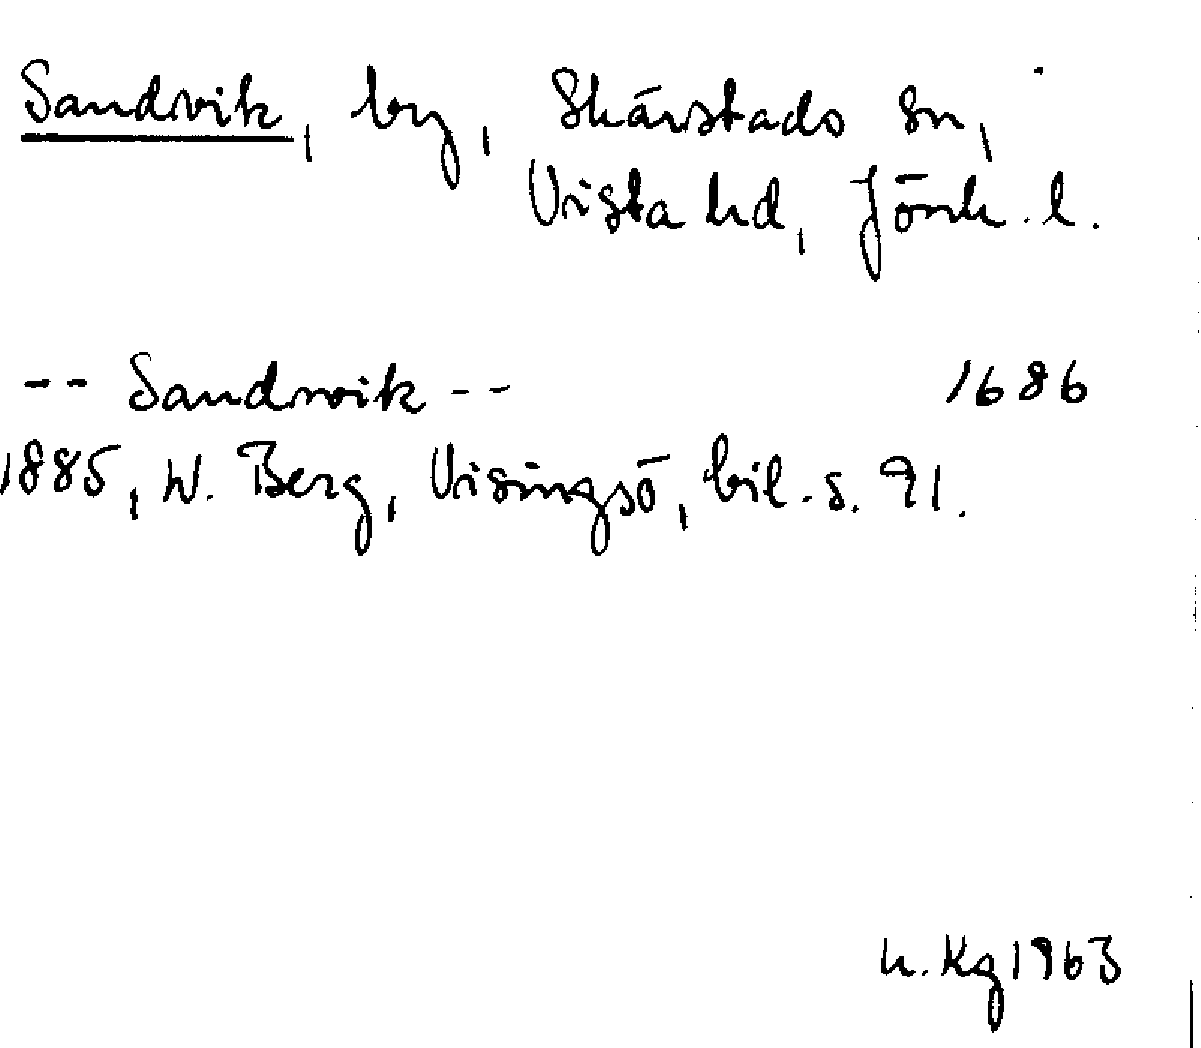 Sandvik, by, Skärstads sn,
Vista hd, Jönk. l.
-- Sandwik -- 1686
1885, W. Berg, Visingsö, bil. s. 91.
h. Kg 1963